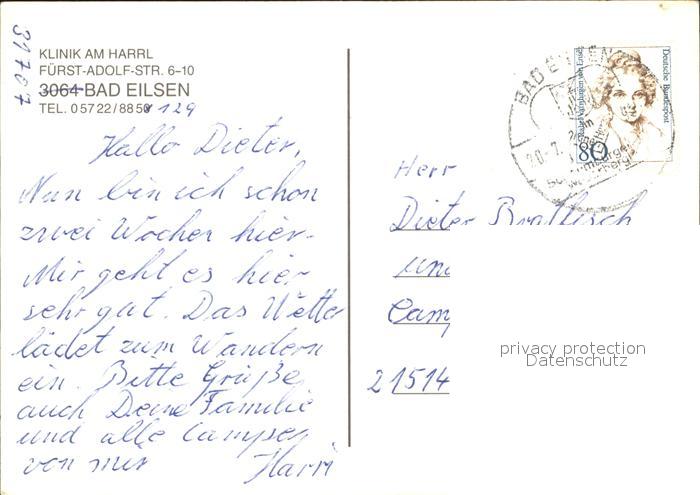 31707
KLINIK AM HARRL
FÜRST-ADOLF-STR. 6–10
3064 BAD EILSEN
TEL. 05722/885 129
Hallo Dieter,
Nun bin ich schon
zwei Wochen hier.
Mir geht es hier
sehr gut. Das Wetter
lädet zum Wandern
ein. Bitte Grüße
auch Deine Familie
und alle Camper
von mir
Harri
Deutsche Bundespost
80
BAD EILSEN
Herr
Dieter
Cam
21514
privacy protection
Datenschutz